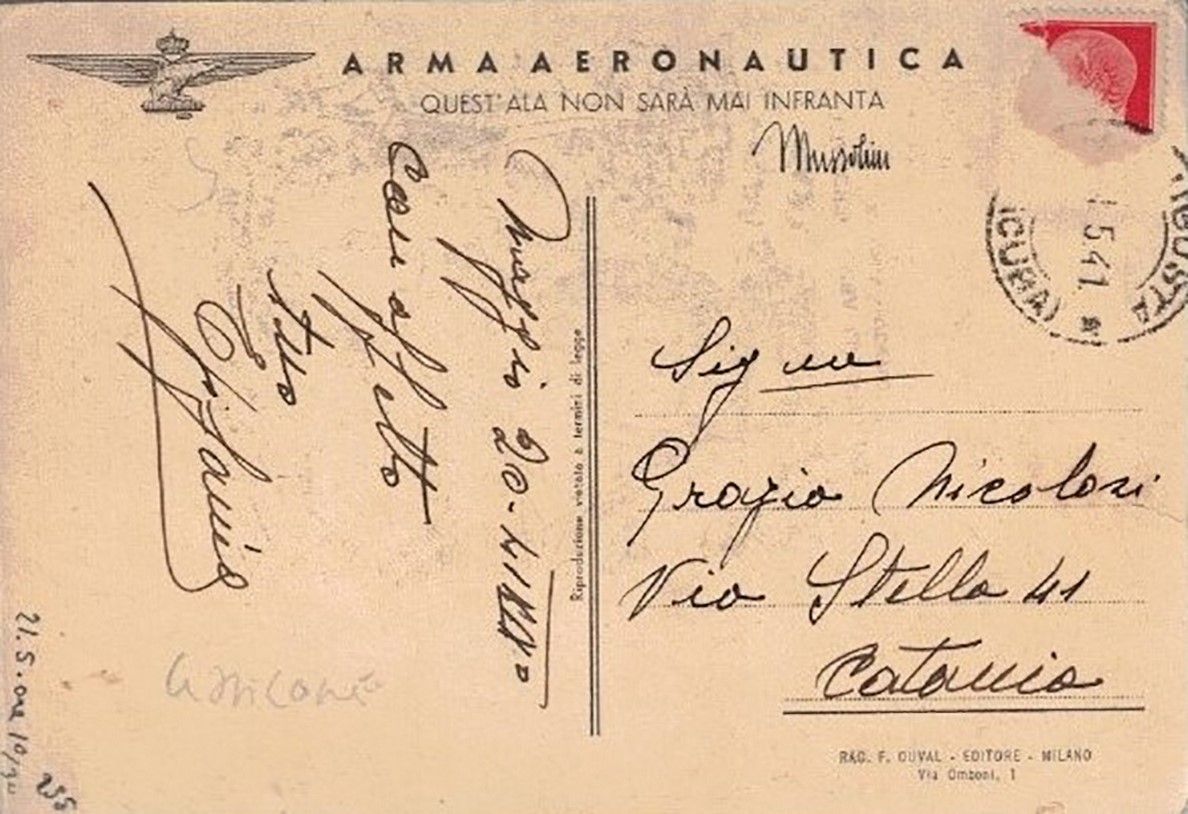 ARMA AERONAUTICA
QUEST'ALA NON SARÀ MAI INFRANTA
Mussolini
AUGUSTA
5.41
Maggio 20-41 XIX°
Con affetto
Riproduzione vietata a termini di legge
Sig na
Grazia Nicolosi
Via Stella 41
Catania
RAG. F. DUVAL - EDITORE - MILANO
Via Omboni, 1
21.5. ore 10
255